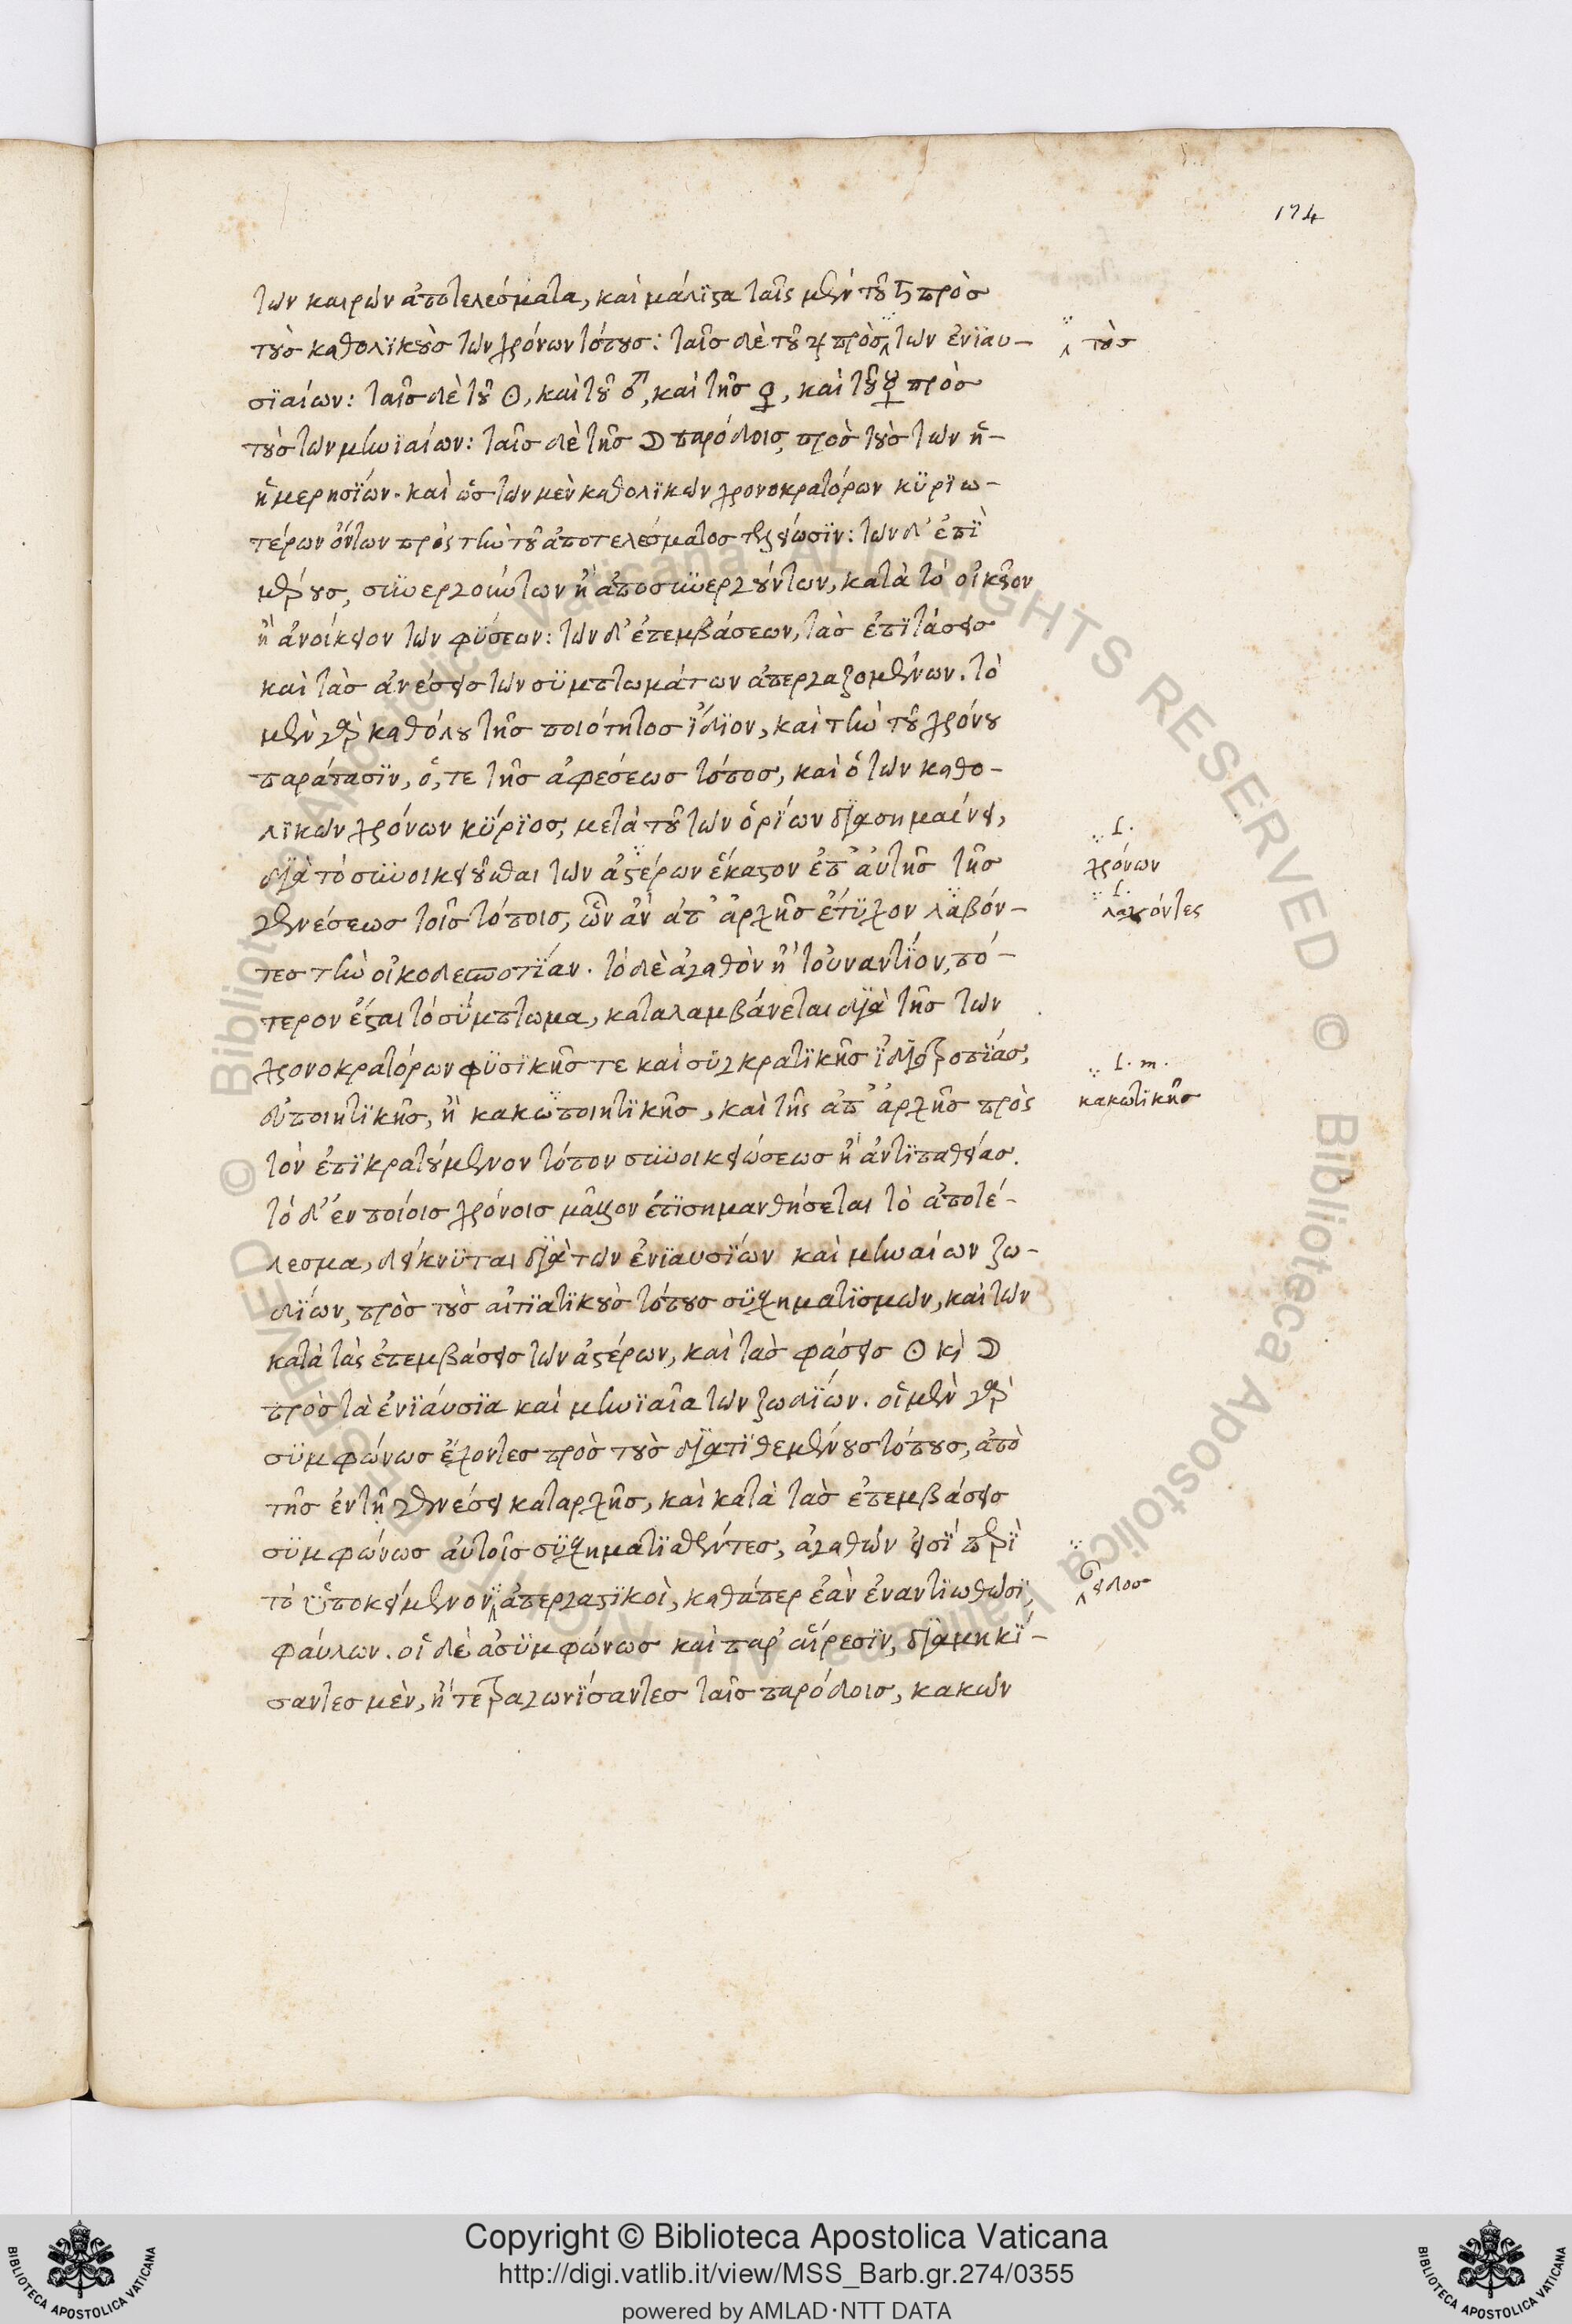 174
τῶν καιρῶν ἀποτελέσματα, καὶ μάλϊστα ταῖς μὲν τοῦ ♄ πρὸσ
τοὺσ καθολϊκοὺσ τῶν χρόνων τόπουσ: ταῖσ δὲ τοῦ ♃ πρὸσ τῶν ἐνϊαυ-
τοὺσ
σϊαίων: ταῖσ δὲ τοῦ ☉, καὶ τοῦ ♂, καὶ τῆσ ♀, καὶ τοῦ ☿ πρὸσ
τοὺσ τῶν μηνϊαίων: ταῖσ δὲ τῆσ ☽ παρόδοισ, πρὸσ τοὺσ τῶν ἡ-
ἡμερησΐων. καὶ ὡσ τῶν μὲν καθολϊκῶν χρονοκρατόρων κϋρϊω-
τέρων ὄντων πρὸς τὴν τοῦ ἀποτελέσματοσ τελείωσϊν: τῶν δ' ἐπῒ
μέρουσ, συνεργούντων ἢ ἀποσυνεργούντων, κατὰ τὸ οἰκεῖον
ἢ ἀνοίκειον τῶν φϋσεων: τῶν δ' ἐπεμβάσεων, τὰσ ἐπϊτάσεισ
καὶ τὰσ ἀνέσεισ τῶν σϋμπτωμάτων ἀπεργαζομένων. τὸ
μὲν γὰρ καθόλου τῆσ ποιότητοσ ἴδϊον, καὶ τὴν τοῦ χρόνου
παράτασϊν, ὅ, τε τῆσ ἀφέσεωσ τόποσ, καὶ ὁ τῶν καθο-
λϊκῶν χρόνων κΰρϊοσ, μετὰ τοῦ τῶν ὁρίων δϊασημαίνει,
L.
χρόνων
δϊὰ τὸ συνοικειοῦσθαι τῶν ἀστέρων ἕκαστον ἐπ' αὐτῆσ τῆσ
γενέσεωσ τοῖσ τόποισ, ὧν ἂν ἀπ' ἀρχῆσ ἔτϋχον λαβόν-
L.
λαχόντες
τεσ τὴν οἰκοδεσποτΐαν. τὸ δὲ ἀγαθὸν ἢ τοὐναντΐον, πό-
τερον ἔσται τὸ σΰμπτωμα, καταλαμβάνεται δϊὰ τῆσ τῶν
χρονοκρατόρων φϋσϊκῆσ τε καὶ σϋγκρατϊκῆσ ἰδϊοτροπΐασ,
εὐποιητϊκῆσ, ἢ κακωποιητϊκῆσ, καὶ τῆς ἀπ' ἀρχῆσ πρὸς
L. m.
κακωτϊκῆσ
τὸν ἐπϊκρατούμενον τόπον συνοικειώσεωσ ἢ ἀντϊπαθείασ.
τὸ δ' ἐν ποίοισ χρόνοισ μᾶλλον ἐπϊσημανθήσεται τὸ ἀποτέ-
λεσμα, δείκνϋται δϊὰ τῶν ἐνϊαυσΐων καὶ μηναίων ζω-
δΐων, πρὸσ τοὺσ αἰτϊατϊκοὺσ τόπουσ σϋσχηματϊσμῶν, καὶ τῶν
κατὰ τὰς ἐπεμβάσεισ τῶν ἀστέρων, καὶ τὰσ φάσεισ ☉ κὶ ☽
πρὸσ τὰ ἐνϊαύσϊα καὶ μηνϊαῖα τῶν ζωδΐων. οἱ μὲν γὰρ
σϋμφώνωσ ἔχοντεσ πρὸσ τοὺσ δϊατϊθεμένουσ τόπουσ, ἀπὸ
τῆσ ἐν τῇ γενέσει καταρχῆσ, καὶ κατὰ τὰσ ἐπεμβάσεισ
σϋμφώνωσ αὐτοῖσ σϋσχηματϊσθέντεσ, ἀγαθῶν εἰσῒ περῒ
τὸ ὑποκείμενον ἀπεργαστϊκοὶ, καθάπερ ἐὰν ἐναντϊωθῶσϊ,
εἶδοσ
φαύλων. οἱ δὲ ἀσϋμφώνωσ καὶ παρ' αἵρεσϊν, δϊαμηκΐ-
σαντεσ μὲν, ἢ τετραγωνΐσαντεσ ταῖσ παρόδοισ, κακῶν
Copyright © Biblioteca Apostolica Vaticana
http://digi.vatlib.it/view/MSS_Barb.gr.274/0355
powered by AMLAD·NTT DATA